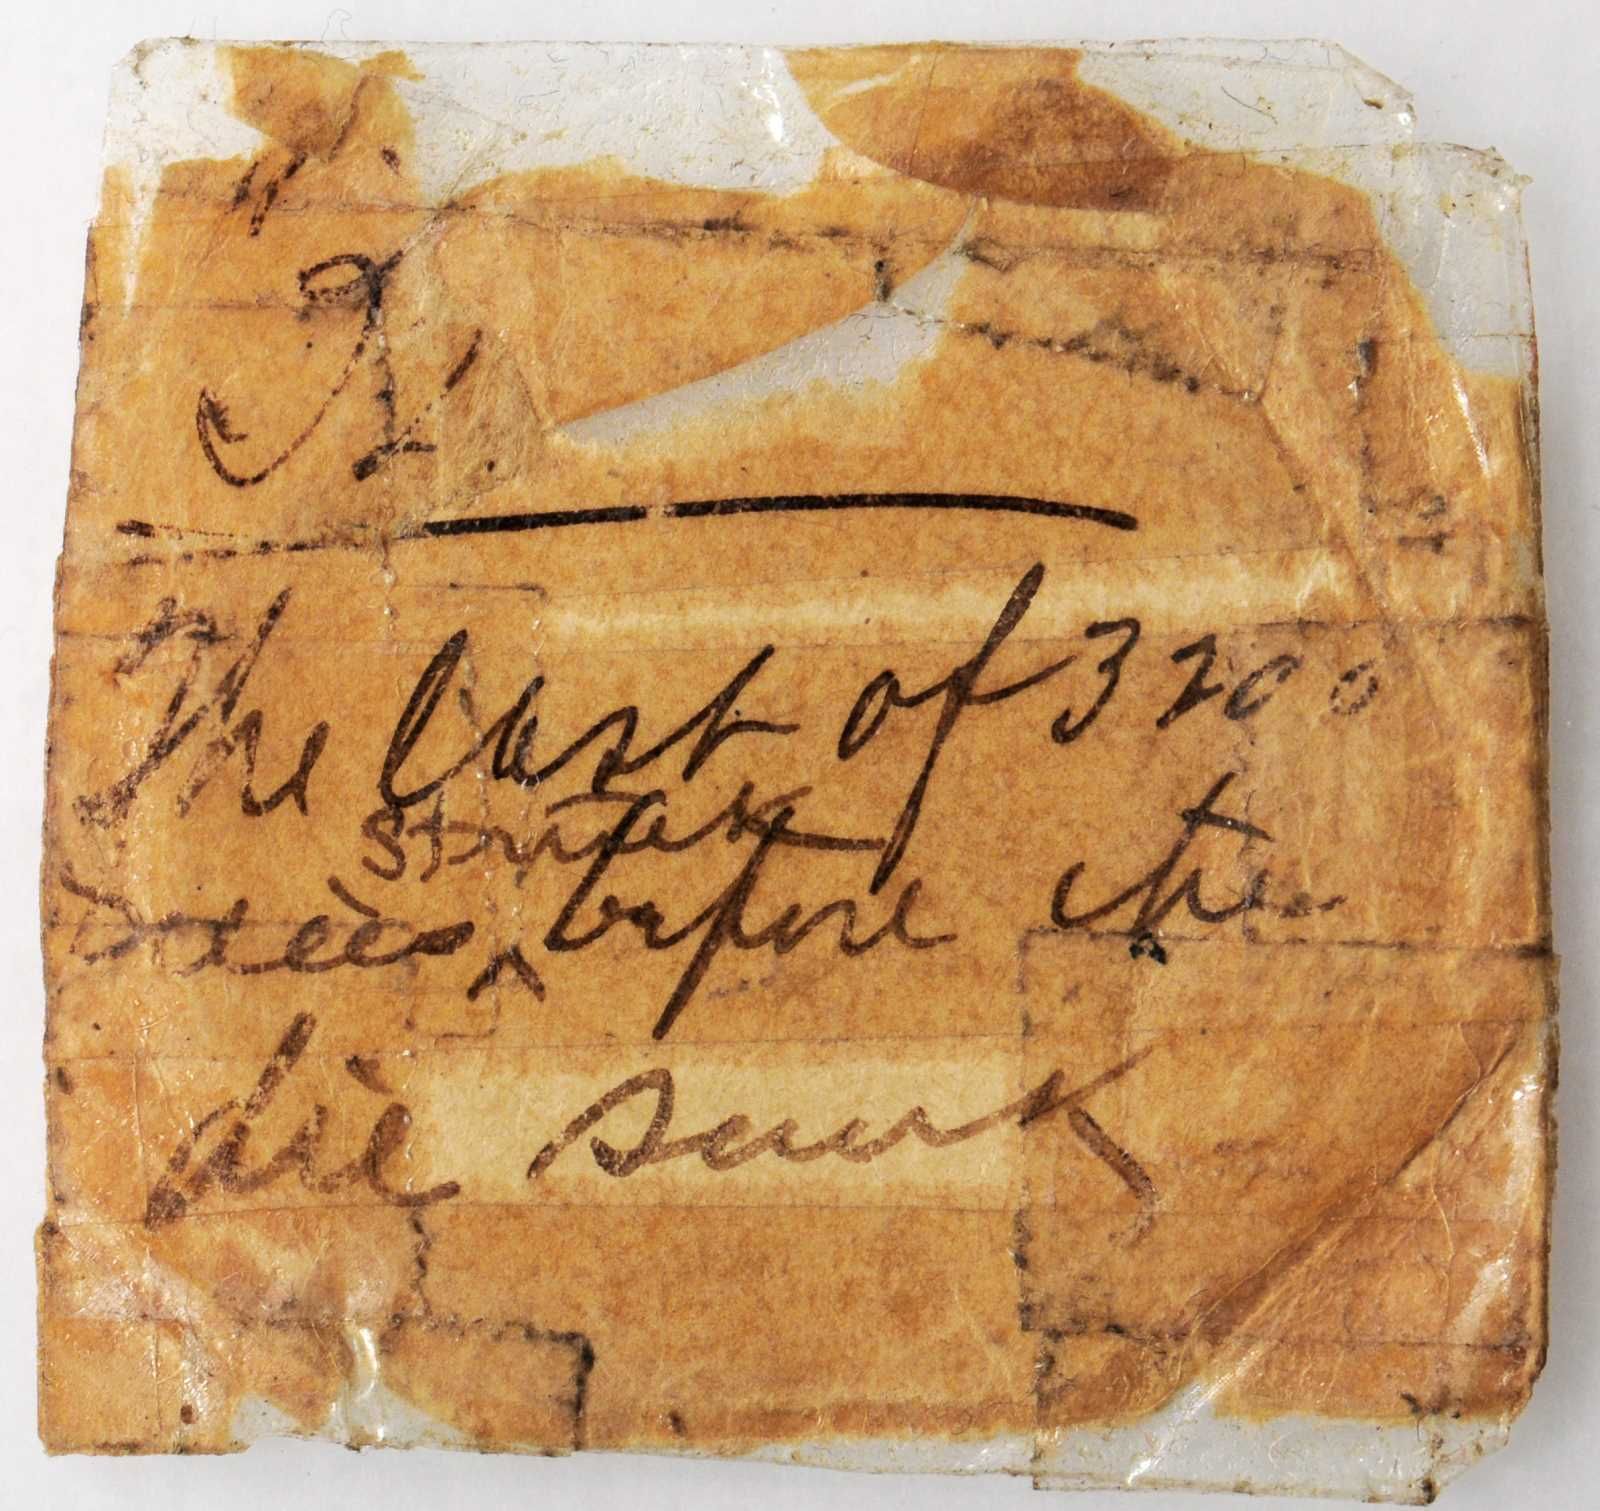 The last of 3200
struck
Pieces ^ before the
die sunk